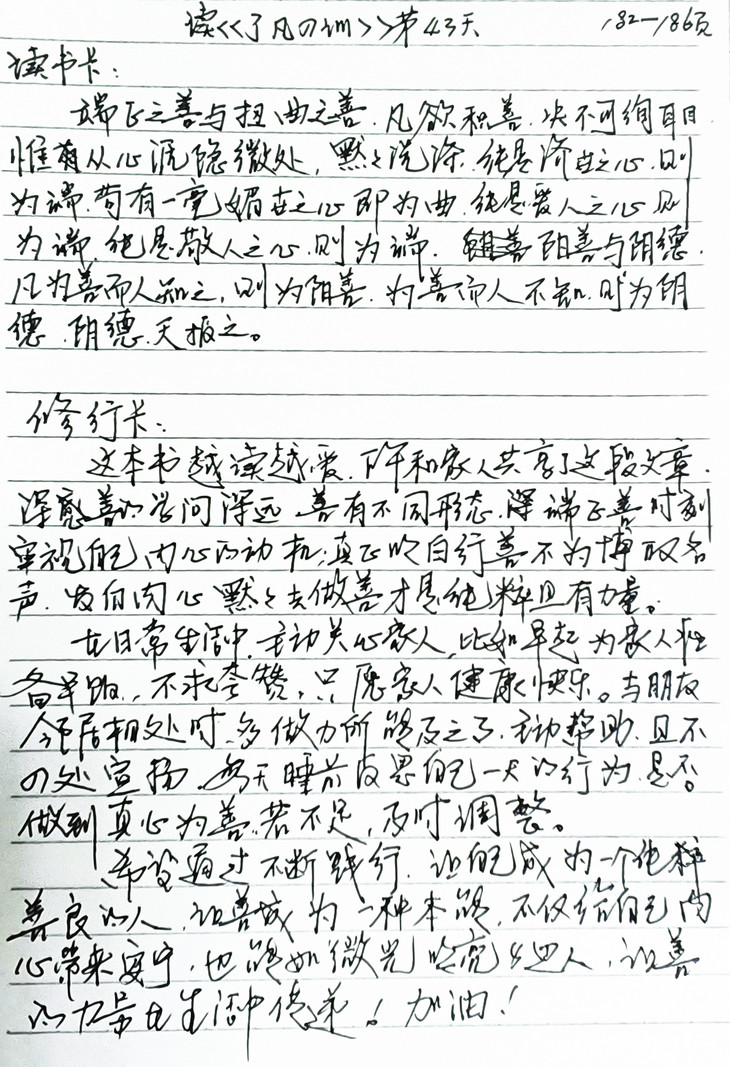 读<<了凡四训>>第43天 182—186页
读书卡：
端正之善与扭曲之善.凡欲积善.决不可徇耳目
惟有从心源隐微处,默々洗涤.纯是济世之心.则
为端.苟有一毫媚世之心即为曲.纯是爱人之心则
为端,纯是敬人之心.则为端.阳善与阴德.
凡为善而人知之,则为阳善.为善而人不知.则为阴
德.阴德.天报之。
修行卡：
这本书越读越爱.下午和家人共享了这段文章.
深感善的学问深远 善有不同形态.深端正善时刻
审视自己内心的动机;真正明白行善不为博取名
声.发自内心默々去做善才是纯粹且有力量。
在日常生活中,主动关心家人,比如早起为家人准
备早饭.,不求夸赞,只愿家人健康快乐。与朋友
邻居相处时.多做力所能及之事.主动帮助.且不
四处宣扬.每天睡前反思自己一天的行为.是否。
做到真心为善.若不足,及时调整。
希望通过不断践行.让自己成为一个纯粹
善良的人,让善成为一种本能,不仅给自己内
心带来安宁,也能如微光照亮他人,让善
的力量在生活中传递！加油！